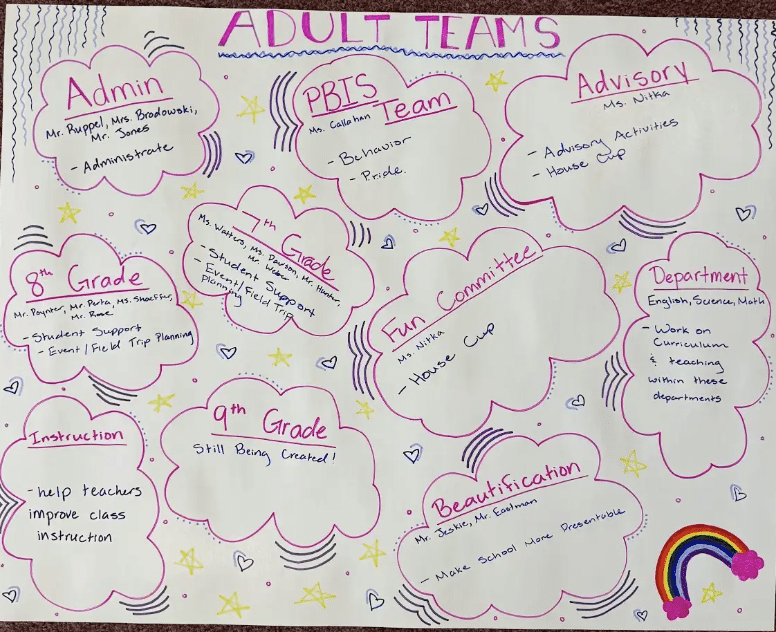 ADULT TEAMS
Admin
Mr. Ruppel, Mrs. Brodowski,
Mr. Jones
- Administrate
PBIS Team
Ms. Callahan
- Behavior
- Pride
Advisory
Ms. Nitka
- Advisory Activities
- House Cup
7th Grade
Ms. Watters, Ms. Dawson, Mr. Hunter,
Mr. Weber
- Student Support
- Event/Field Trip
Planning
8th Grade
Mr. Poynter, Mr. Perta, Ms. Shaeffer,
Mr. Rose
- Student Support
- Event/Field Trip Planning
Fun Committee
Ms. Nitka
- House Cup
Department
English, Science, Math
- Work on
Curriculum
& teaching
within these
departments
Instruction
- help teachers
improve class
instruction
9th Grade
Still Being Created!
Beautification
Mr. Jeskie, Mr. Eastman
- Make School More Presentable